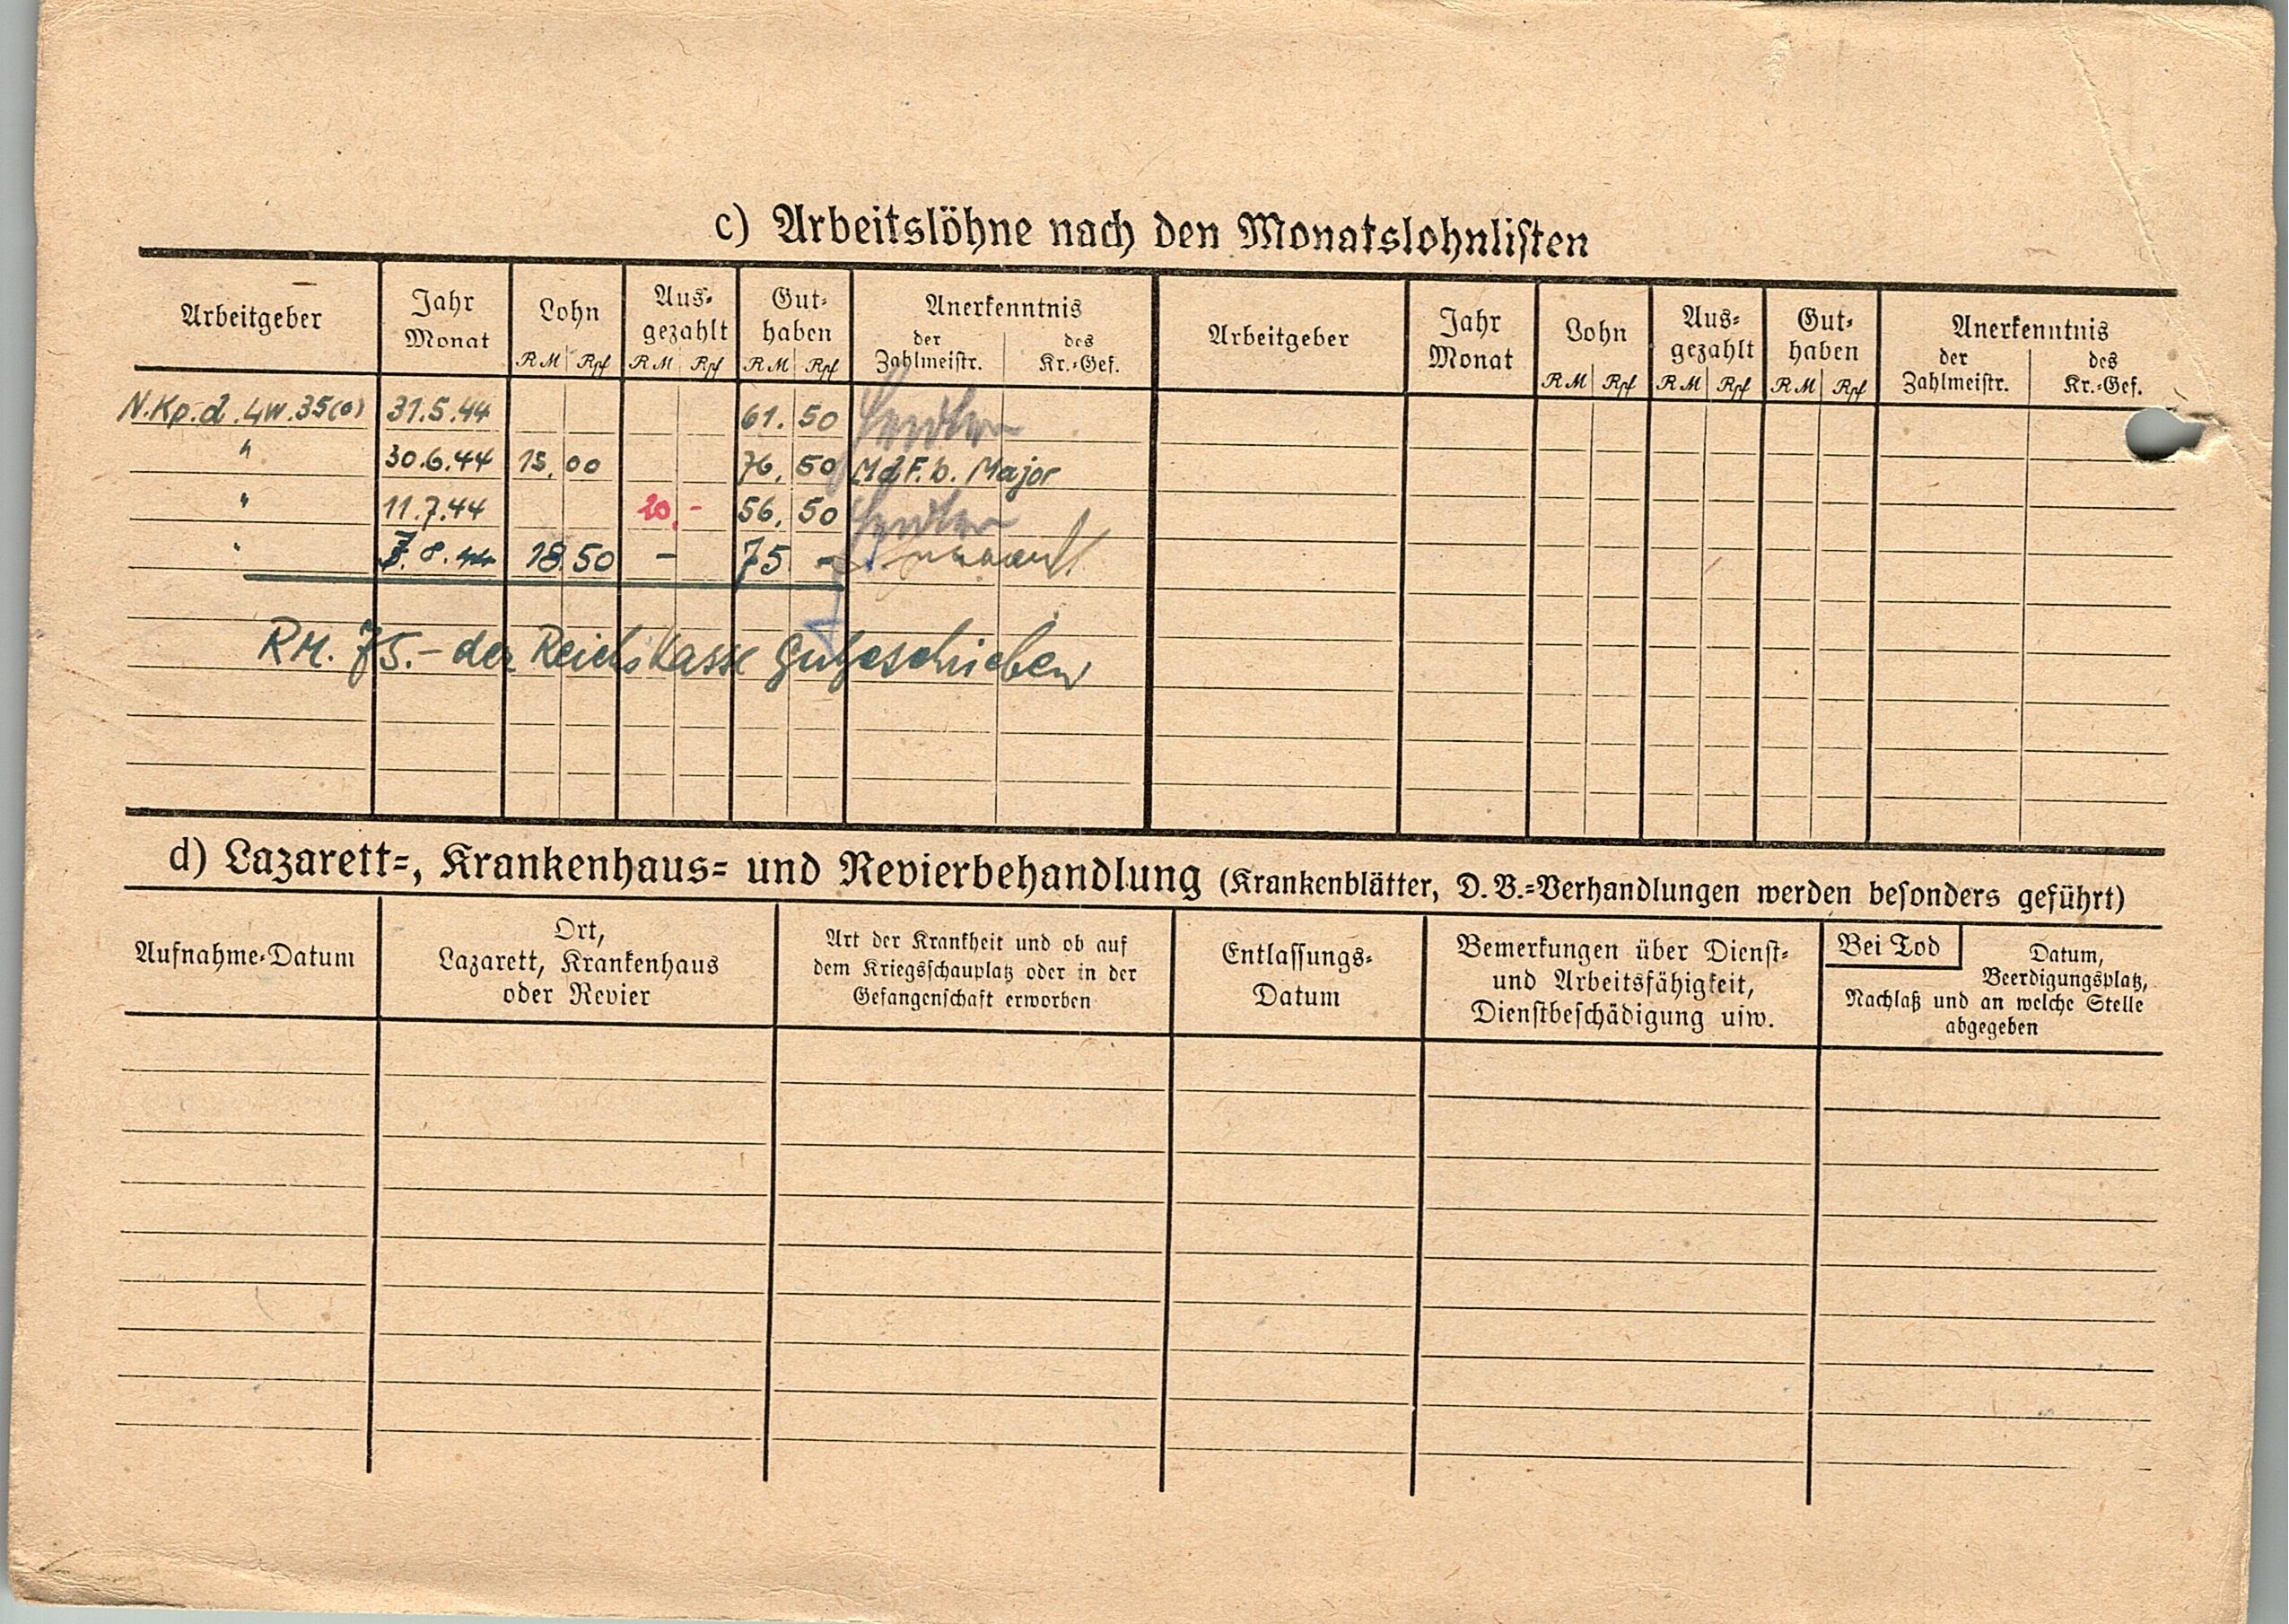 c) Arbeitslöhne nach den Monatslohnlisten
Arbeitgeber Jahr Monat Lohn Ausgezahlt Guthaben Anerkenntnis Arbeitgeber Jahr Monat Lohn Ausgezahlt Guthaben Anerkenntnis
RM Rpf RM Rpf RM Rpf der Zahlmeistr. des Kr.-Gef. RM Rpf RM Rpf RM Rpf der Zahlmeistr. des Kr.-Gef.
N.Kp.d.LW.35(o) 31.5.44 61. 50
" 30.6.44 15.00 76. 50 MdF.b. Major
" 11.7.44 20.- 56. 50
" 7.8.44 18 50 - 75 -
RM. 75.- der Reichskasse gutgeschrieben
d) Lazarett-, Krankenhaus- und Revierbehandlung (Krankenblätter, D.B.-Verhandlungen werden besonders geführt)
Aufnahme-Datum
Ort,
Lazarett, Krankenhaus
oder Revier
Art der Krankheit und ob auf
dem Kriegsschauplatz oder in der
Gefangenschaft erworben
Entlassungs-
Datum
Bemerkungen über Dienst-
und Arbeitsfähigkeit,
Dienstbeschädigung usw.
Bei Tod Datum,
Beerdigungsplatz,
Nachlaß und an welche Stelle
abgegeben